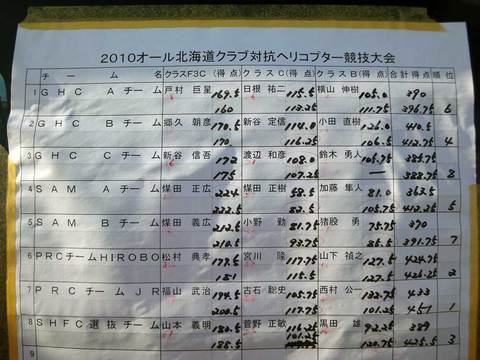 2010オール北海道クラブ対抗ヘリコプター競技大会
チーム名 クラスF3C(得点) クラスC(得点) クラスB(得点) 合計得点 順位
1 GHC Aチーム 戸村 巨星 169.5 日根 祐二 115.5 横山 伸樹 105.0 390
160 113.25 111.75 396.75 6
2 GHC Bチーム 郷久 朝彦 170.5 新谷 定信 114.0 小田 直樹 126.0 410.5
170. 116.25 106.5 412.75 4
3 GHC Cチーム 新谷 信吾 172 渡辺 和彦 108.0 鈴木 勇人 105.75 385.75
175 107.25 — 388.75 8
4 SAM Aチーム 煤田 正広 224 煤田 正樹 58.5 加藤 隼人 81.0 363.5
222.5 82.5 105.75 412.25 5
5 SAM Bチーム 煤田 義広 212.5 小野 勤 81.75 猪股 勇 75.75 370
210.5 93.75 81.5 391.75 7
6 PRCチームHIROBO 松村 典孝 178.5 宮川 隆 117.75 山下 禎之 127.5 424.75
181 115.5 127.5 426.25 2
7 PRCチームJR 福山 武治 194.5 古石 聡史 105.75 西村 公一 132.75 433
200.5 117.75 101.25 451 1
8 SHFC選抜チーム 山本 義明 180.5 菅野 正敏 116.25 黒田 雄 92.25 389
188.5 120.75 425.5 3